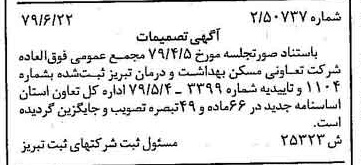 شماره ۲/۵۰۷۳۷ ۷۹/۶/۲۲
آگهی تصمیمات
باستناد صورتجلسه مورخ ۷۹/۴/۵ مجمع عمومی فوق‌العاده
شرکت تعاونی مسکن بهداشت و درمان تبریز ثبت‌شده بشماره
۱۱۰۴ و تاییدیه شماره ۳۳۹۹ – ۷۹/۵/۴ اداره کل تعاون استان
اساسنامه جدید در ۶۶ماده و ۴۹تبصره تصویب و جایگزین گردیده
است.
ش ۲۵۳۲۳ مسئول ثبت شرکتهای ثبت تبریز